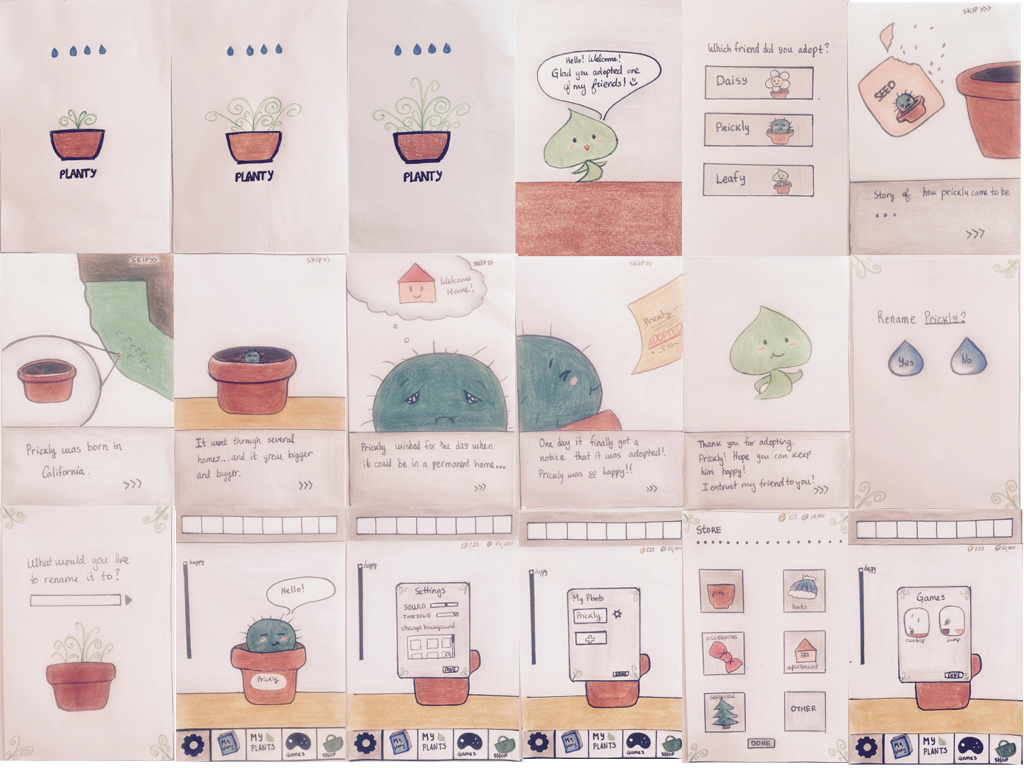 PLANTY
PLANTY
PLANTY
Hello! Welcome!
Glad you adopted one
of my friends!
Which friend did you adopt?
Daisy
Prickly
Leafy
SKIP >>>
SEED
Story of how prickly came to be
...
>>>
SKIP>>
Prickly was born in
California.
>>>
SKIP>>
It went through several
homes...and it grew bigger
and bigger.
>>>
SKIP>>
Welcome
Home!
Prickly wished for the day when
it could be in a permanent home...
>>>
SKIP>>
Prickly
ADOPTED
One day it finally got a
notice that it was adopted!
Prickly was so happy!!
>>>
Thank you for adopting
Prickly! Hope you can keep
him happy!
I entrust my friend to you!
>>>
Rename Prickly?
Yes
No
What would you like
to rename it to?
happy
Hello!
Prickly
MY PLANTS
GAMES
SHOP
happy
Settings
SOUND
change background
DONE
MY PLANTS
GAMES
SHOP
happy
My Plants
Prickly
DONE
MY PLANTS
GAMES
SHOP
STORE
pots
hats
accessories
apartment
OTHER
DONE
happy
Games
DONE
MY PLANTS
GAMES
SHOP